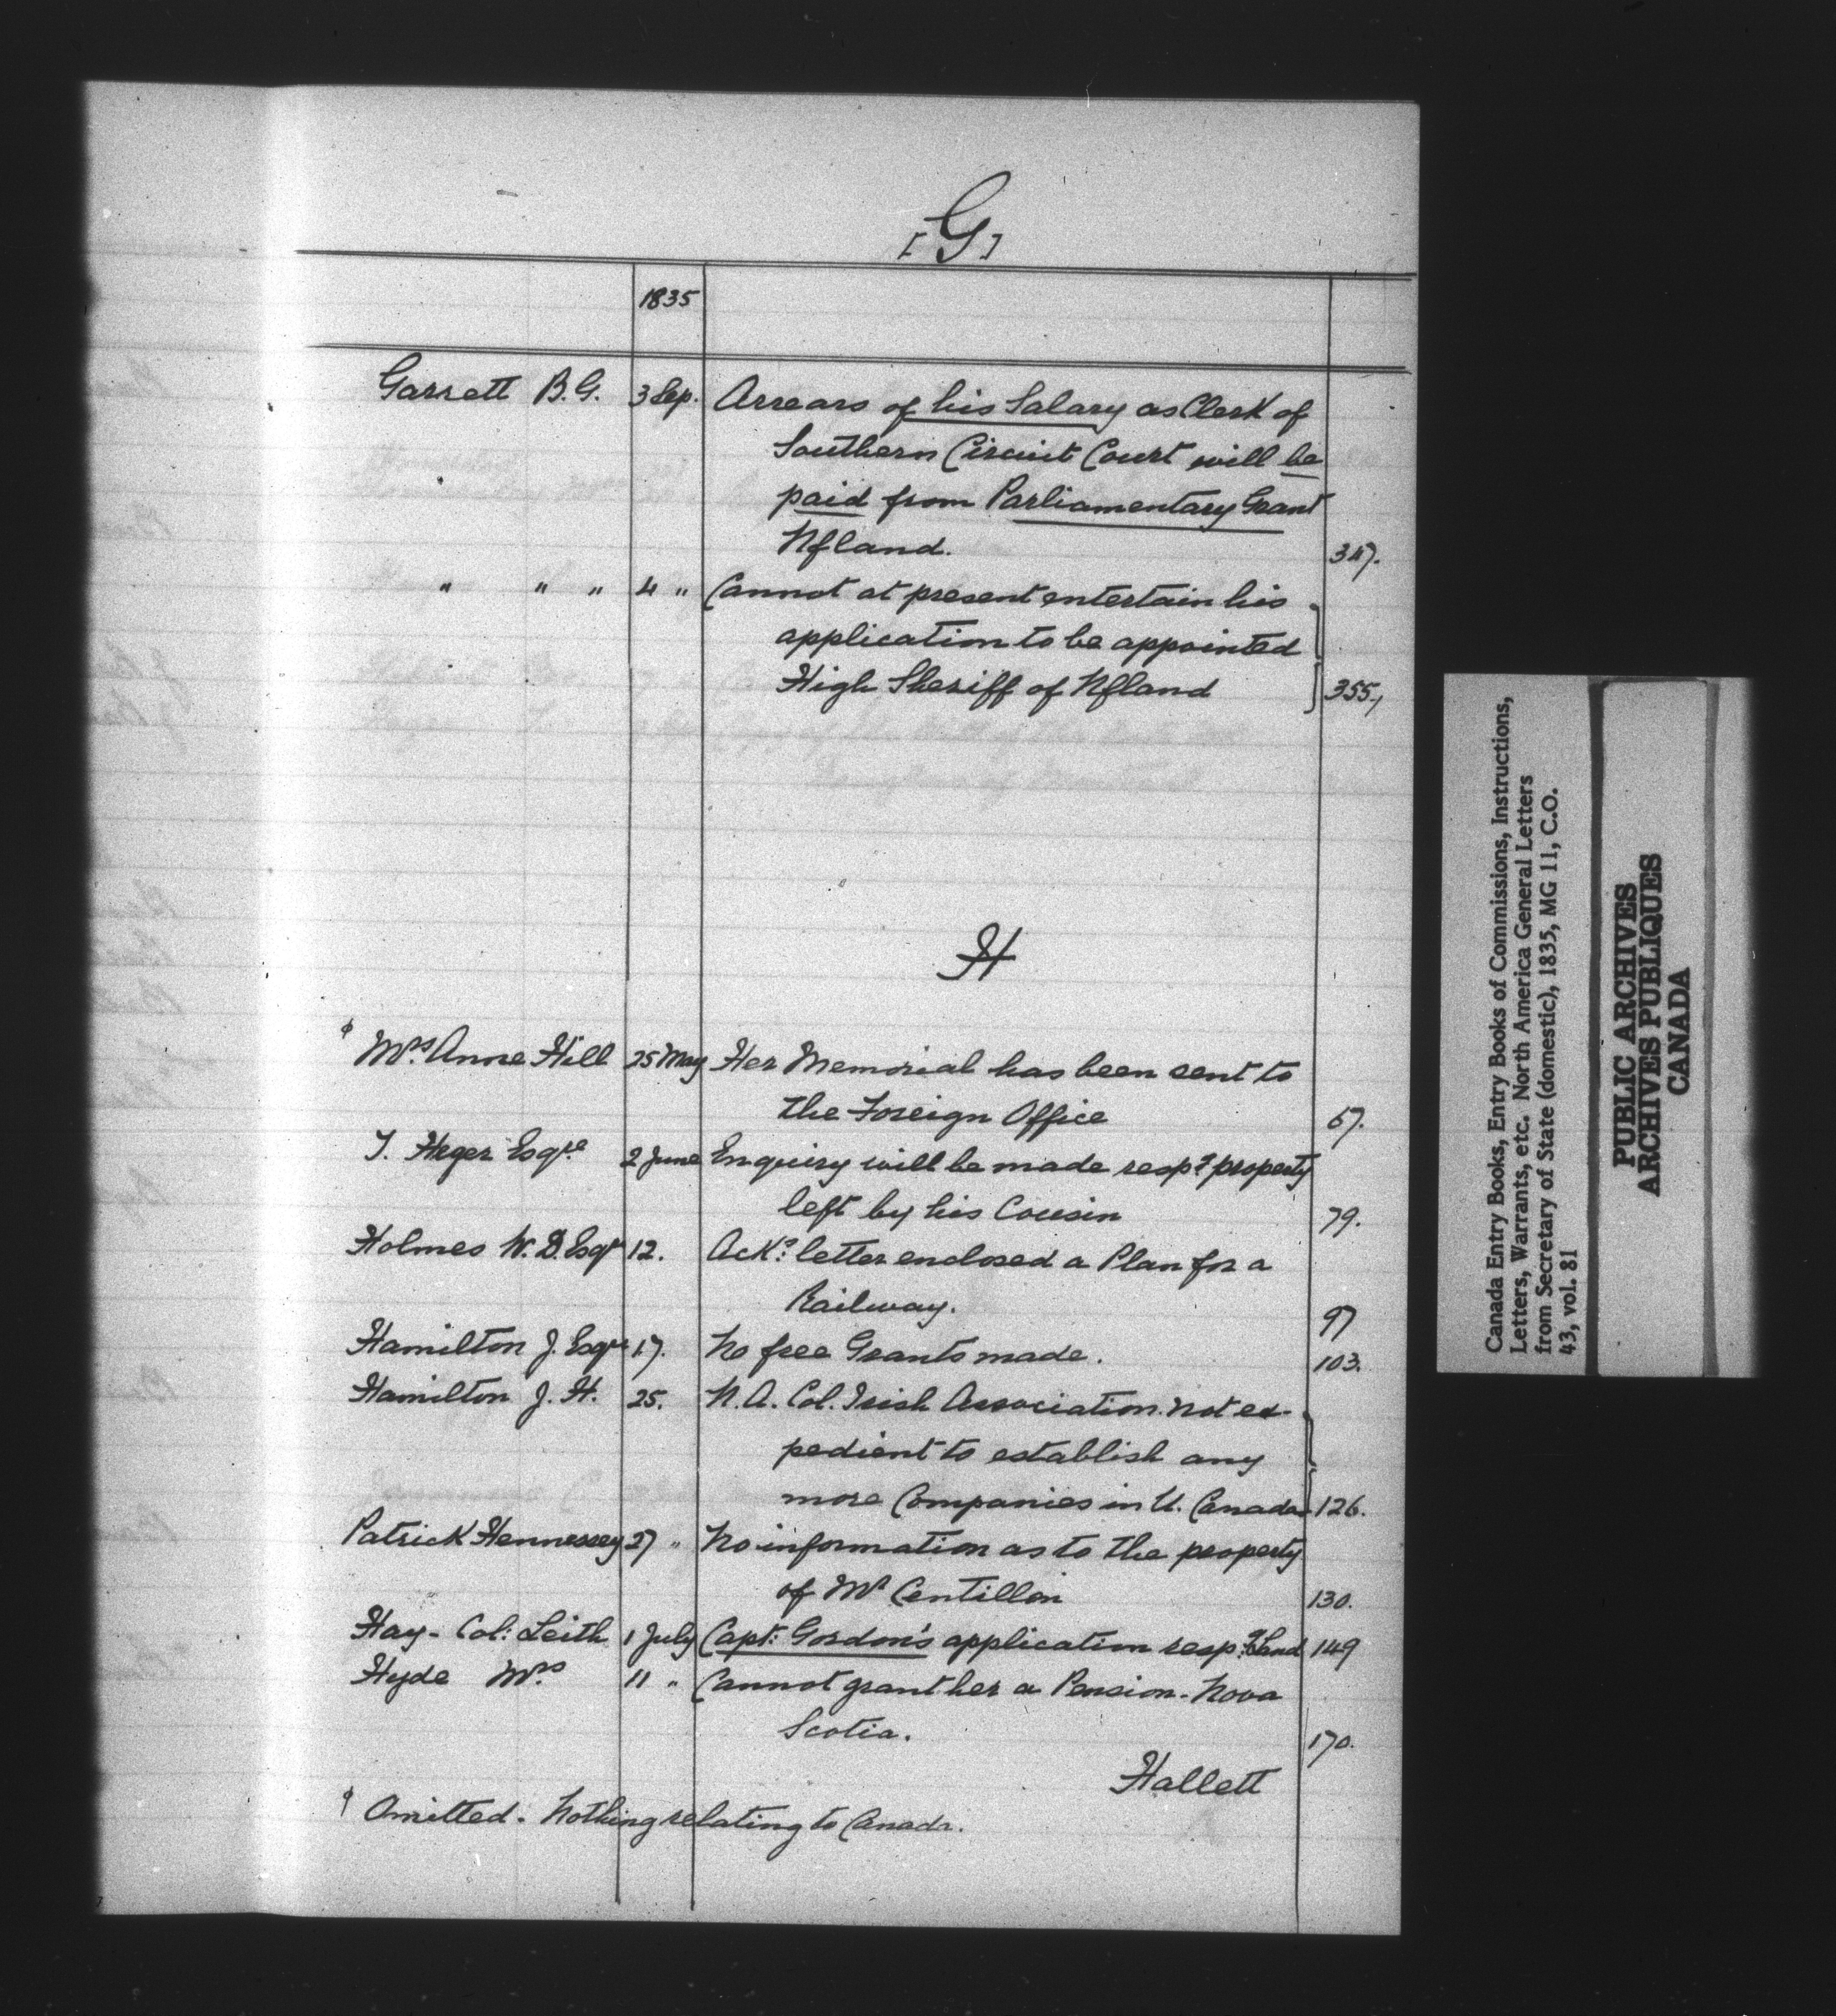 [G]
1835
Garrett B.G. 3 Sep. Arrears of his Salary as Clerk of
Southern Circuit Court will be
paid from Parliamentary Grant
Nfland. 347.
" " " 4 " Cannot at present entertain his
application to be appointed
High Sheriff of Nfland 355.
H
Mrs. Anne Hill 25 May Her Memorial has been sent to
the Foreign Office 67.
T. Heger Esqre. 2 June Enquiry will be made respg property
left by his Cousin 79.
Holmes W. D. Esqr 12. Ackg. letter enclosed a Plan for a
Railway. 97
Hamilton J. Esqre 17. No free Grants made. 103.
Hamilton J. H. 25. N.A. Col. Irish Association. not ex-
pedient to establish any
more Companies in U. Canada 126.
Patrick Hennessey 27 " No information as to the property
of Mr Centillon 130.
Hay - Col: Leith 1 July Capt: Gordon's application respg Land 149
Hyde Mrs. 11 " Cannot grant her a Pension - Nova
Scotia. 170.
Hallett
Omitted - Nothing relating to Canada.
Canada Entry Books, Entry Books of Commissions, Instructions,
Letters, Warrants, etc. North America General Letters
from Secretary of State (domestic), 1835, MG 11, C.O.
43, vol. 81
PUBLIC ARCHIVES
ARCHIVES PUBLIQUES
CANADA